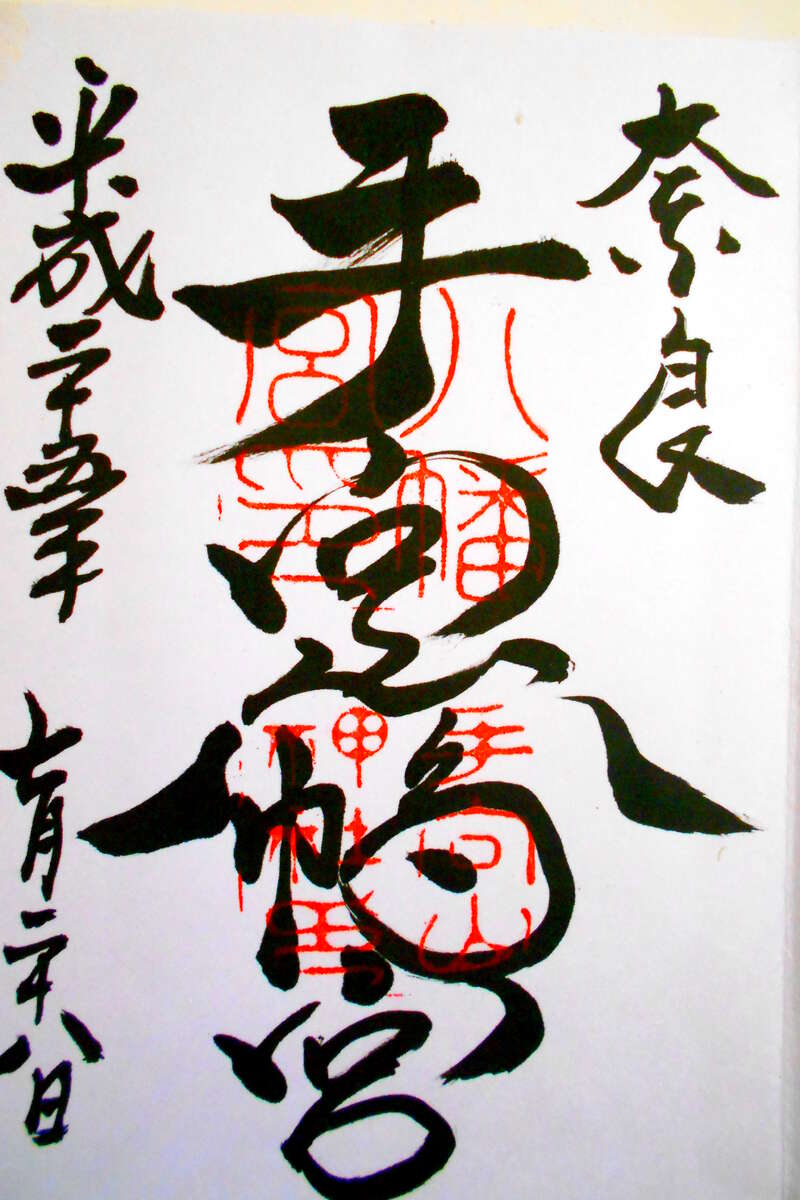 奈良
手向山八幡宮
平成二十五年
七月二十八日
八幡
宮印
手向山
神社